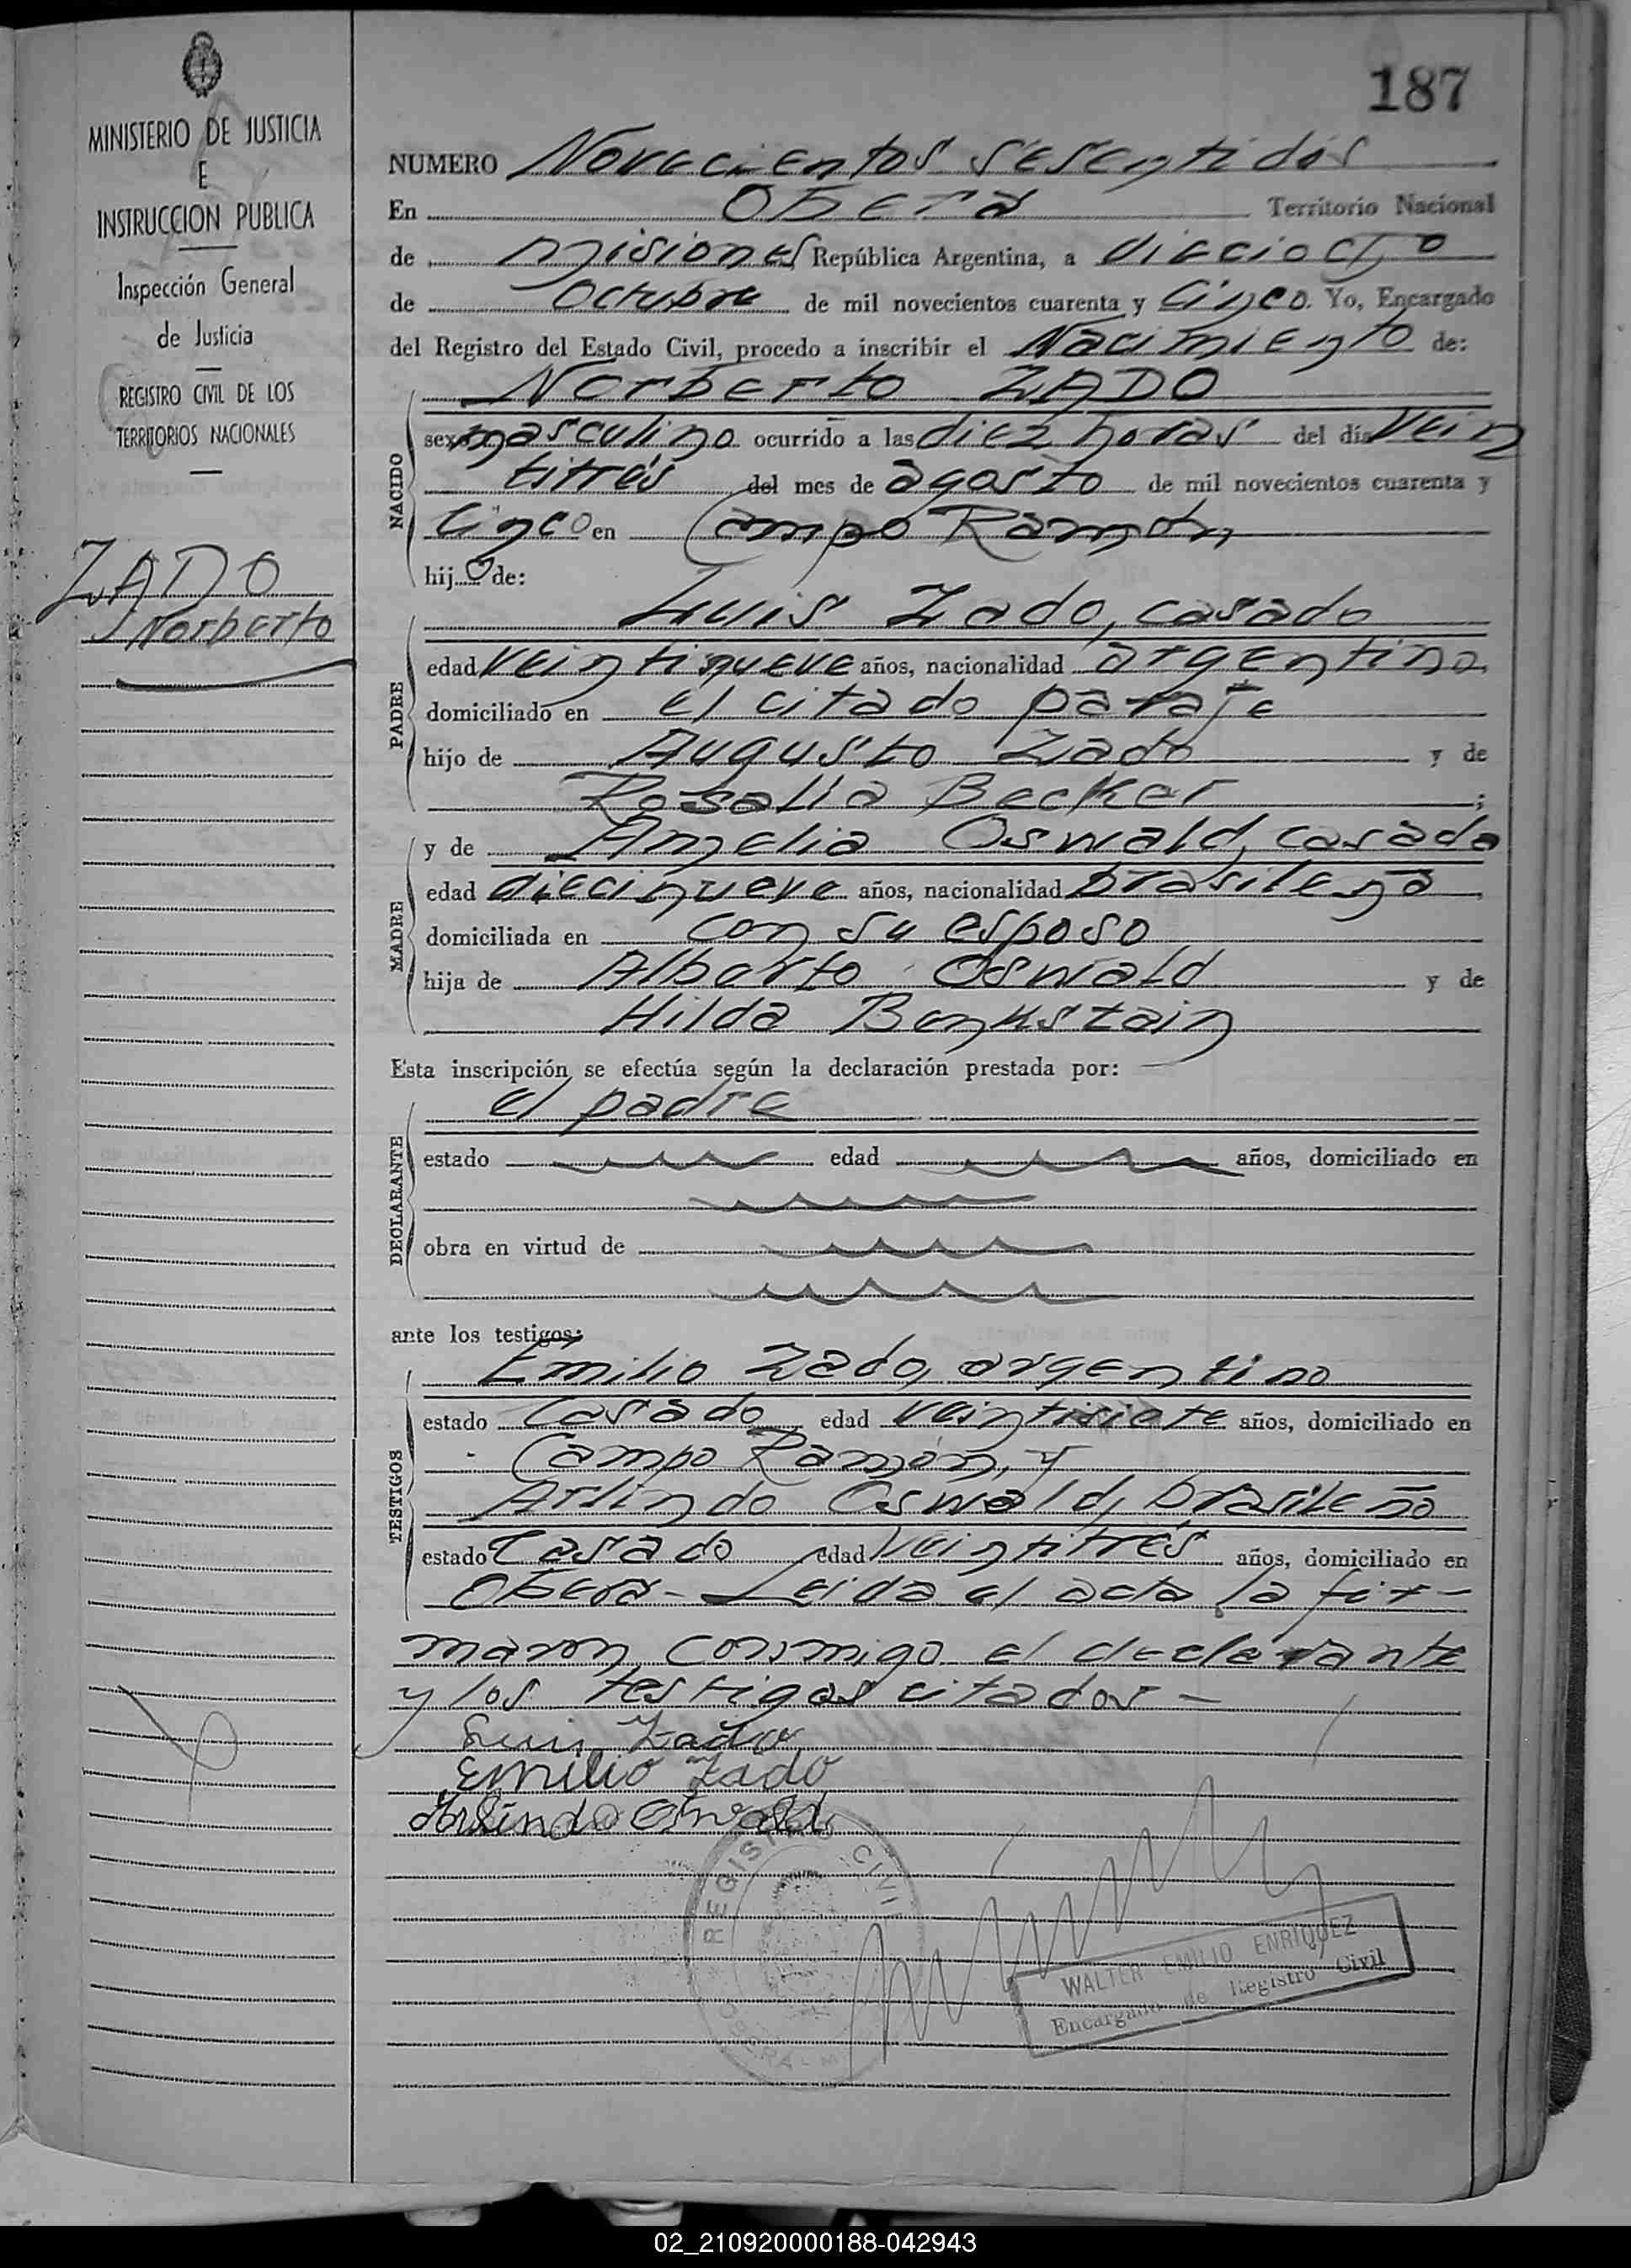 187
MINISTERIO DE JUSTICIA
E
INSTRUCCION PUBLICA
Inspección General
de Justicia
REGISTRO CIVIL DE LOS
TERRITORIOS NACIONALES
ZADO
Norberto
NUMERO Novecientos sesentidós
En Oberá Territorio Nacional
de Misiones República Argentina, a dieciocho
de Octubre de mil novecientos cuarenta y Cinco. Yo, Encargado
del Registro del Estado Civil, procedo a inscribir el Nacimiento de:
NACIDO
Norberto ZADO
sexo masculino ocurrido a las diez horas del día vein
titrés del mes de agosto de mil novecientos cuarenta y
Cinco en Campo Ramón,
hijo de:
PADRE
Luis Zado, casado
edad veintinueve años, nacionalidad argentina,
domiciliado en el citado paraje
hijo de Augusto Zado y de
Rosalia Becker;
MADRE
y de Amelia Oswald, casada
edad diecinueve años, nacionalidad brasileña,
domiciliada en con su esposo
hija de Alberto Oswald y de
Hilda
Esta inscripción se efectúa según la declaración prestada por:
DECLARANTE
el padre
estado edad años, domiciliado en
obra en virtud de
ante los testigos:
TESTIGOS
Emilio Zado, argentino
estado Casado edad veintisiete años, domiciliado en
Campo Ramón, y
Arlindo Oswald, brasileño
estado Casado edad veintitrés años, domiciliado en
Oberá - Leida el acta, la fir-
maron conmigo el declarante
y los testigos citados -
Luis Zado
Emilio Zado
Arlindo Oswald
REGISTRO CIVIL
OBERA - M
WALTER EMILIO ENRIQUEZ
Encargado de Registro Civil
02_210920000188-042943